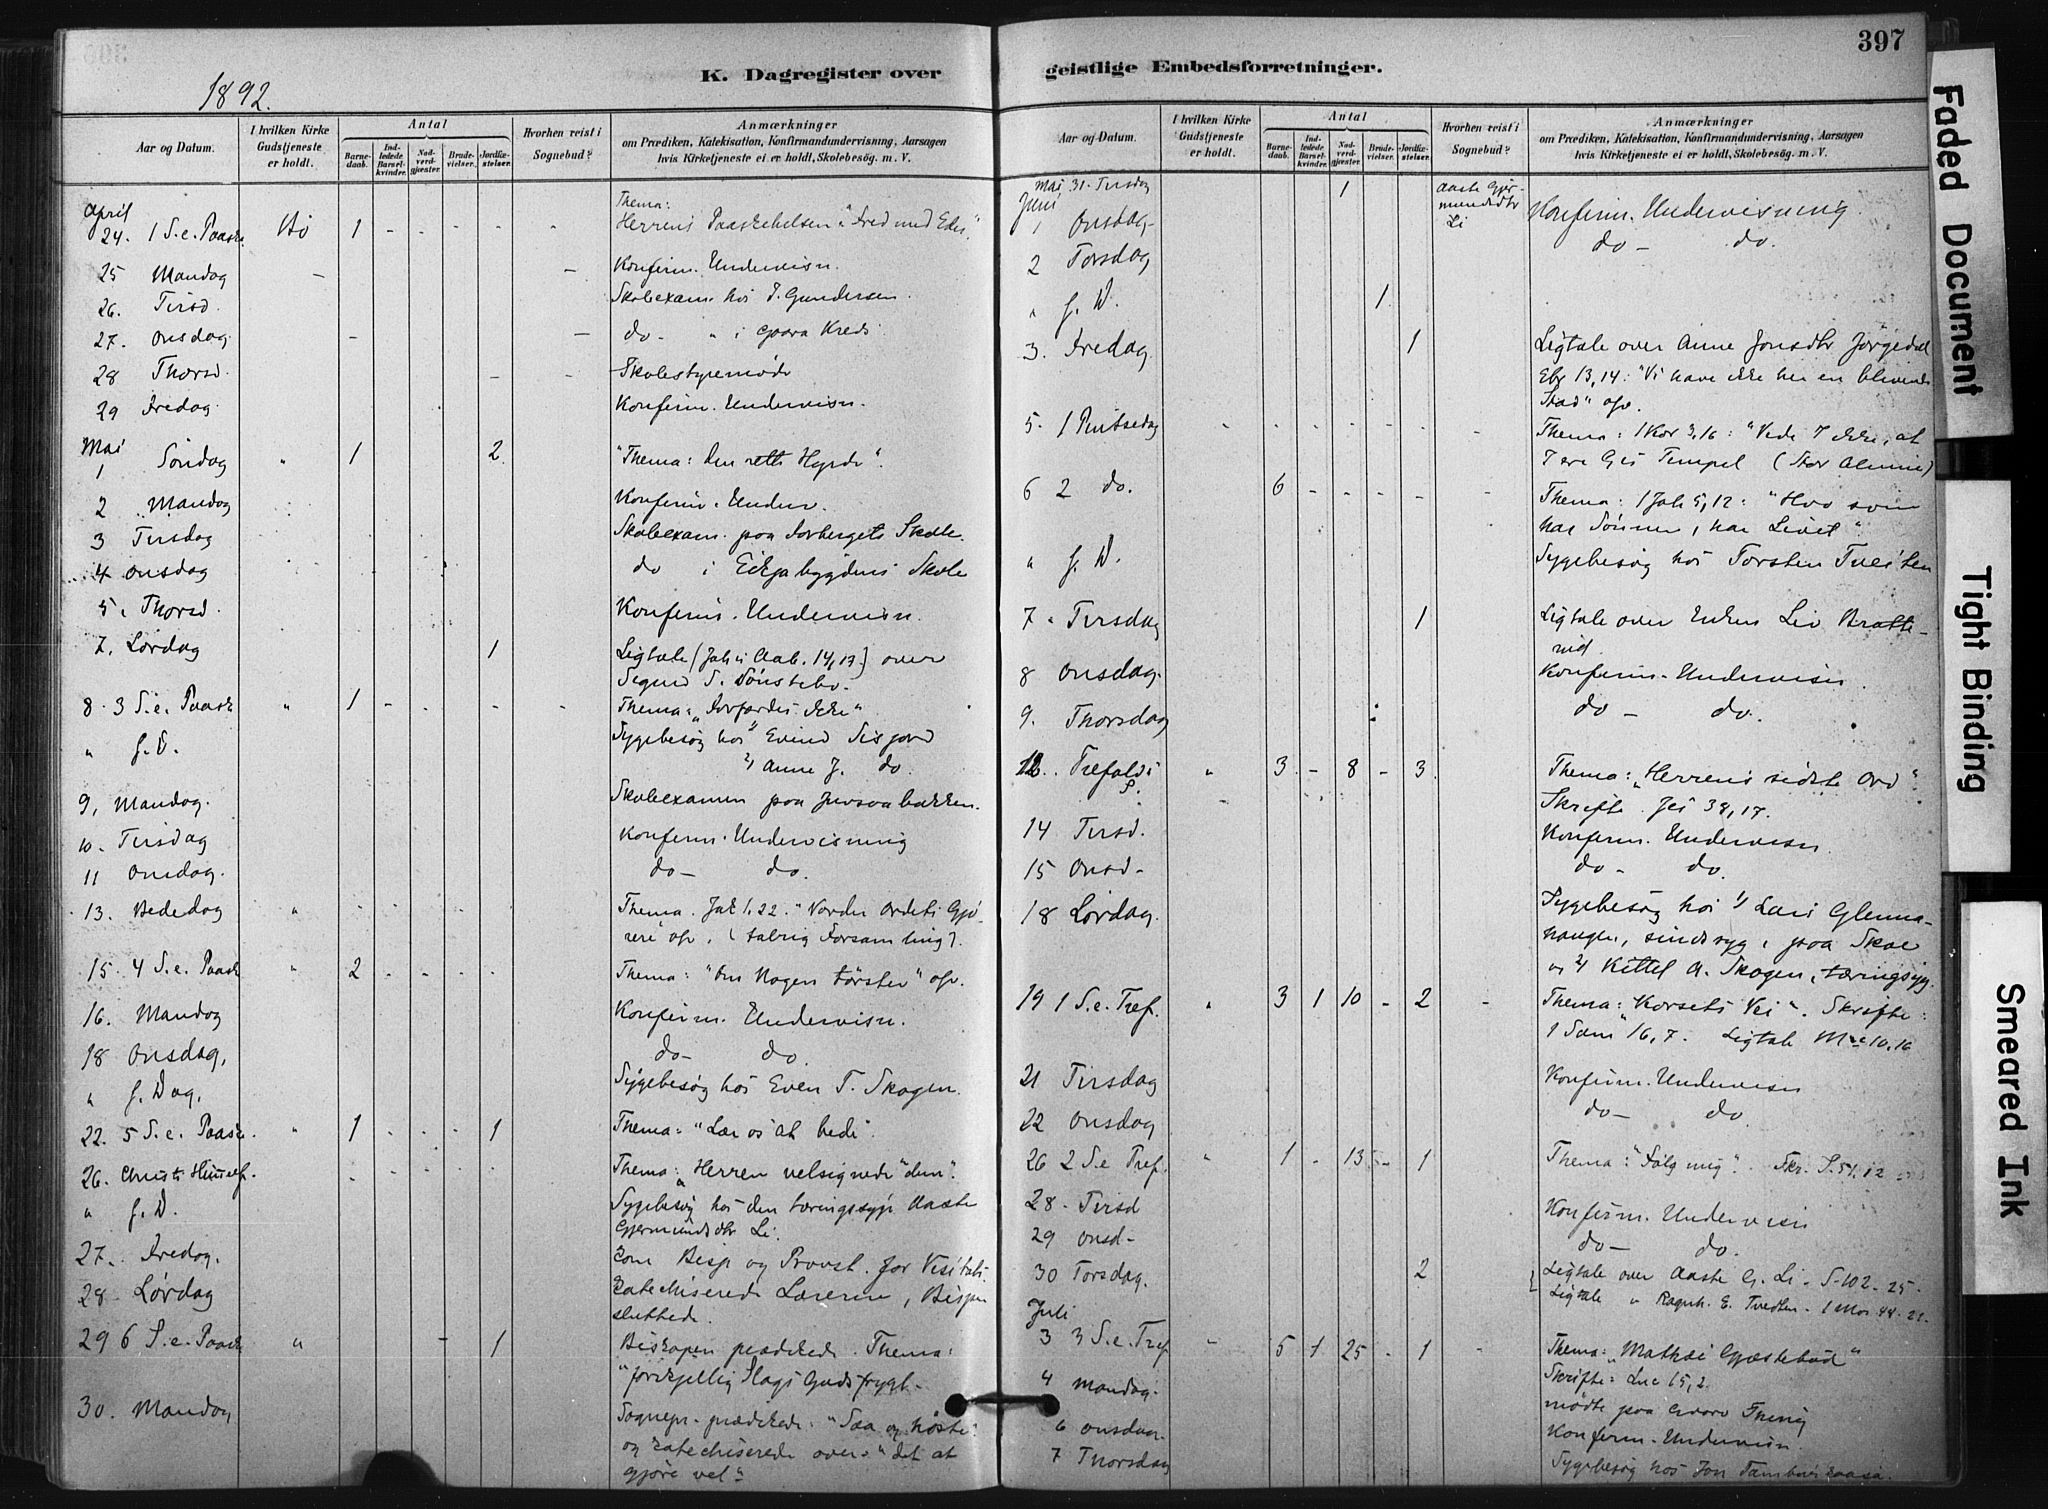 397
K. Dagregister over geistlige Embedsforretninger.
1892.
Aar og Datum.
I hvilken Kirke Gudstjeneste er holdt.
Antal
Barnedaab.
Indledede Barselkvinder.
Nadverdgjæster.
Brudevielser.
Jordfæstelser.
Hvorhen reist i Sognebud?
Anmærkninger
om Prædiken, Katekisation, Konfirmandundervisning, Aarsagen
hvis Kirketjeneste ei er holdt, Skolebesög. m. V.
April
Thema:
24. 1 S. e. Paaske Bö 1 - - - - " Herrens Paaskehelsen "Fred med Eder".
25 Mandag - - Konfirm. Undervisn.
26. Tirsd. Skolexam. hos T. Gundersen.
27. Onsdag - - do - " i Gaara Kreds
28 Thorsd. - - Skolestyremøde
29 Fredag. Konfirm. Undervisn.
Mai
1 Söndag " 1 2. "Thema: Den rette Hyrde".
2 Mandag Konfirm. Underv.
3 Tirsdag Skolexam. paa Forbergets Skole.
4 Onsdag do i Eikjabygdens Skole
5. Thorsd. Konfirm. Undervisn.
7. Lørdag 1 Ligtale (Joh's Aab. 14,13) over
Sigurd S. Sönstebö.
8. 3 S. e. Paaske " 1 - - - - - Thema: "Forfærdes ikke"
" f. D. Sygebesøg hos 1) Evind Sisjord
2) Anne J. do.
9, Mandag. Skolexamen paa Juvsaabakken.
10. Tirsdag Konfirm. Undervisning
11 Onsdag. do - do.
13. Bededag " Thema. Jak 1.22. "Vorder Ordets Gjö-
rere" osv. (talrig Forsamling).
15. 4 S. e. Paaske " 2 - - - - Thema: "Om Nogen törster" osv.
16. Mandag Konfirm. Undervisn.
18 Onsdag, do - do
" f. Dag, Sygebesøg hos Even T. Skogen.
22. 5 S. e. Paaske. " 1 - - - 1 Thema: "Lær os at bede".
26. Christi Himmelf. - - - - Thema: "Herren velsignede dem".
" f. D. Sygebesøg hos den tæringssyge Aaste
Gjermundsdtr Li.
27. Fredag. Kom Bisp og Provst for Visitats.
28. Lørdag Katechiserede Lærerne, Bispen
sluttede.
29 6 S. e. Paaske " - 1 Biskopen prædikede. Thema:
"forskjellig Slags Gudsfrygt.
30. Mandag Sognepr. prædikede: "Saa og höste"
og katechiserede over: "det at
gjöre vel"
Aar og Datum.
I hvilken Kirke Gudstjeneste er holdt.
Antal
Barnedaab.
Indledede Barselkvinder.
Nadverdgjæster.
Brudevielser.
Jordfæstelser.
Hvorhen reist i Sognebud?
Anmærkninger
om Prædiken, Katekisation, Konfirmandundervisning, Aarsagen
hvis Kirketjeneste ei er holdt, Skolebesög. m. V.
Mai 31. Tirsdag 1 Aaste Gjer-
mundsdtr
Li
Juni
1 Onsdag - Konfirm. Undervisning.
2 Torsdag do - do.
" f. D. 1
3. Fredag. 1 Ligtale over Anne Jonsdtr Jørgedal
Ebr 13,14: "Vi have ikke her en blivende
Stad" osv.
5. 1 Pintsedag - - - - - - Thema: 1 Kor 3,16: "Vide I ikke, at
I ere Gds Tempel (Stor Almue)
6 2 do. 6 - - - - - Thema: 1 Joh 5,12: "Hvo som
har Sönnen, har Livet"
" f. D. Sygebesøg hos Torsten Tveiten
7 " Tirsdag 1 Ligtale over Enken Liv Bratte-
rud.
8 Onsdag. Konfirm. Undervisn.
9. Thorsdag do - do.
12. Trefold. S. " 3 - 8 - 3 Thema: "Herrens sidste Ord".
Skrifte. Jes 38,17.
14 Tirsd. Konfirm. Undervisn.
15 Onsd - do - do.
18 Lørdag. Sygebesøg hos 1) Lars Glenna-
haugen, sindssyg, paa Skoe
og 2) Kittel A. Skogen, tæringssyg.
19 1 S. e. Tref. " 3 1 10 - 2 - Thema: "Korsets Vei". Skrifte:
1 Sam 16,7. Ligtale Mrc 10,16
21 Tirsdag Konfirm. Undervisn
22 Onsdag do - do.
26 2 S. e Tref. " 1 - 13 - 1 Thema: "Følg mig". Skr. S. 51,12
28 - Tirsd Konfirm. Undervisn
29 Onsd - do - do.
30 Torsdag. 2 Ligtale over Aaste G. Li - S-102-25-
Ligtale " Ragnh. E. Tvedten - 1 Mos. 48-21-
Juli
3 3 S. e. Tref " 5 1 25 - 1 - Thema: "Mathæi Gjæstebud"
Skrifte: Luc 15,2.
4 Mandag. mödte paa Thing
6 Onsdag. Konfirm. Undervisn.
7 Thorsdag Sygebesøg hos Jon
Faded Document
Tight Binding
Smeared Ink